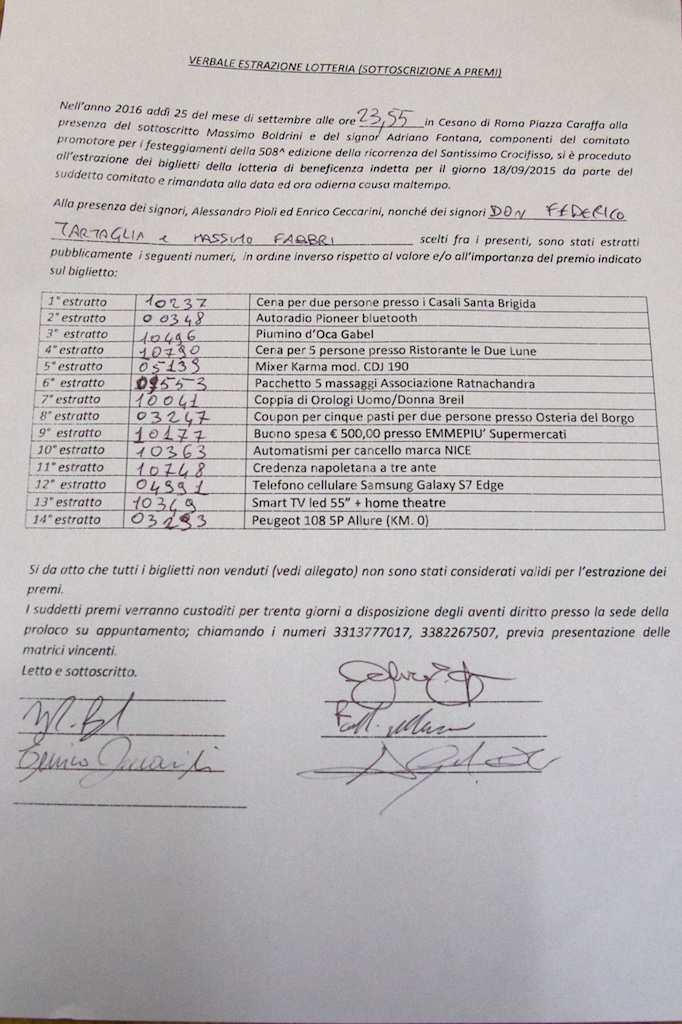 VERBALE ESTRAZIONE LOTTERIA (SOTTOSCRIZIONE A PREMI)
Nell'anno 2016 addì 25 del mese di settembre alle ore 23,55 in Cesano di Roma Piazza Caraffa alla
presenza del sottoscritto Massimo Boldrini e del signor Adriano Fontana, componenti del comitato
promotore per i festeggiamenti della 508^ edizione della ricorrenza del Santissimo Crocifisso, si è proceduto
all'estrazione dei biglietti della lotteria di beneficenza indetta per il giorno 18/09/2015 da parte del
suddetto comitato e rimandata alla data ed ora odierna causa maltempo.
Alla presenza dei signori, Alessandro Pioli ed Enrico Ceccarini, nonché dei signori DON FEDERICO
TARTAGLIA e MASSIMO FABBRI scelti fra i presenti, sono stati estratti
pubblicamente i seguenti numeri, in ordine inverso rispetto al valore e/o all'importanza del premio indicato
sul biglietto:
1° estratto 10237 Cena per due persone presso i Casali Santa Brigida
2° estratto 00348 Autoradio Pioneer bluetooth
3° estratto 10496 Piumino d'Oca Gabel
4° estratto 10790 Cena per 5 persone presso Ristorante le Due Lune
5° estratto 05139 Mixer Karma mod. CDJ 190
6° estratto Pacchetto 5 massaggi Associazione Ratnachandra
7° estratto 10041 Coppia di Orologi Uomo/Donna Breil
8° estratto 03247 Coupon per cinque pasti per due persone presso Osteria del Borgo
9° estratto 10177 Buono spesa € 500,00 presso EMMEPIU' Supermercati
10° estratto 10363 Automatismi per cancello marca NICE
11° estratto 10748 Credenza napoletana a tre ante
12° estratto 04991 Telefono cellulare Samsung Galaxy S7 Edge
13° estratto 10349 Smart TV led 55" + home theatre
14° estratto Peugeot 108 5P Allure (KM. 0)
Si da atto che tutti i biglietti non venduti (vedi allegato) non sono stati considerati validi per l'estrazione dei
premi.
I suddetti premi verranno custoditi per trenta giorni a disposizione degli aventi diritto presso la sede della
proloco su appuntamento; chiamando i numeri 3313777017, 3382267507, previa presentazione delle
matrici vincenti.
Letto e sottoscritto.